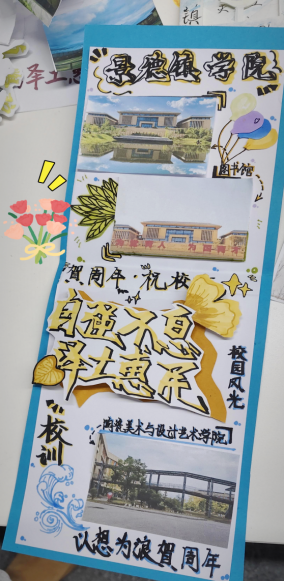 景德镇学院
图书馆
贺周年·祝校
自强不息
泽土惠足
校园风光
校训
陶瓷美术与设计艺术学院
以想为浪贺周年